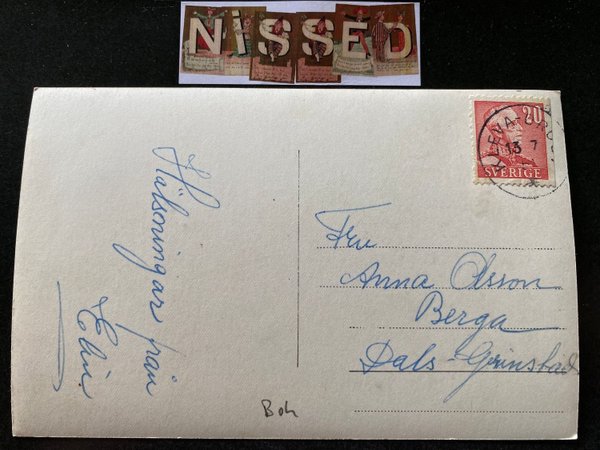 NISSED
20
SVERIGE
13 7
Hälsningar från
Elin.
Fru
Anna Olsson
Berga
Dals-Grinstad
Boh